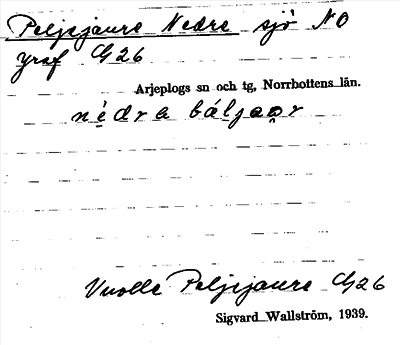 Peljejaure Nedre sjö NO
Yraf G26
Arjeplogs sn och tg, Norrbottens län.
nèdra báljaọr
Vuolle Peljejaure G26
Sigvard Wallström, 1939.